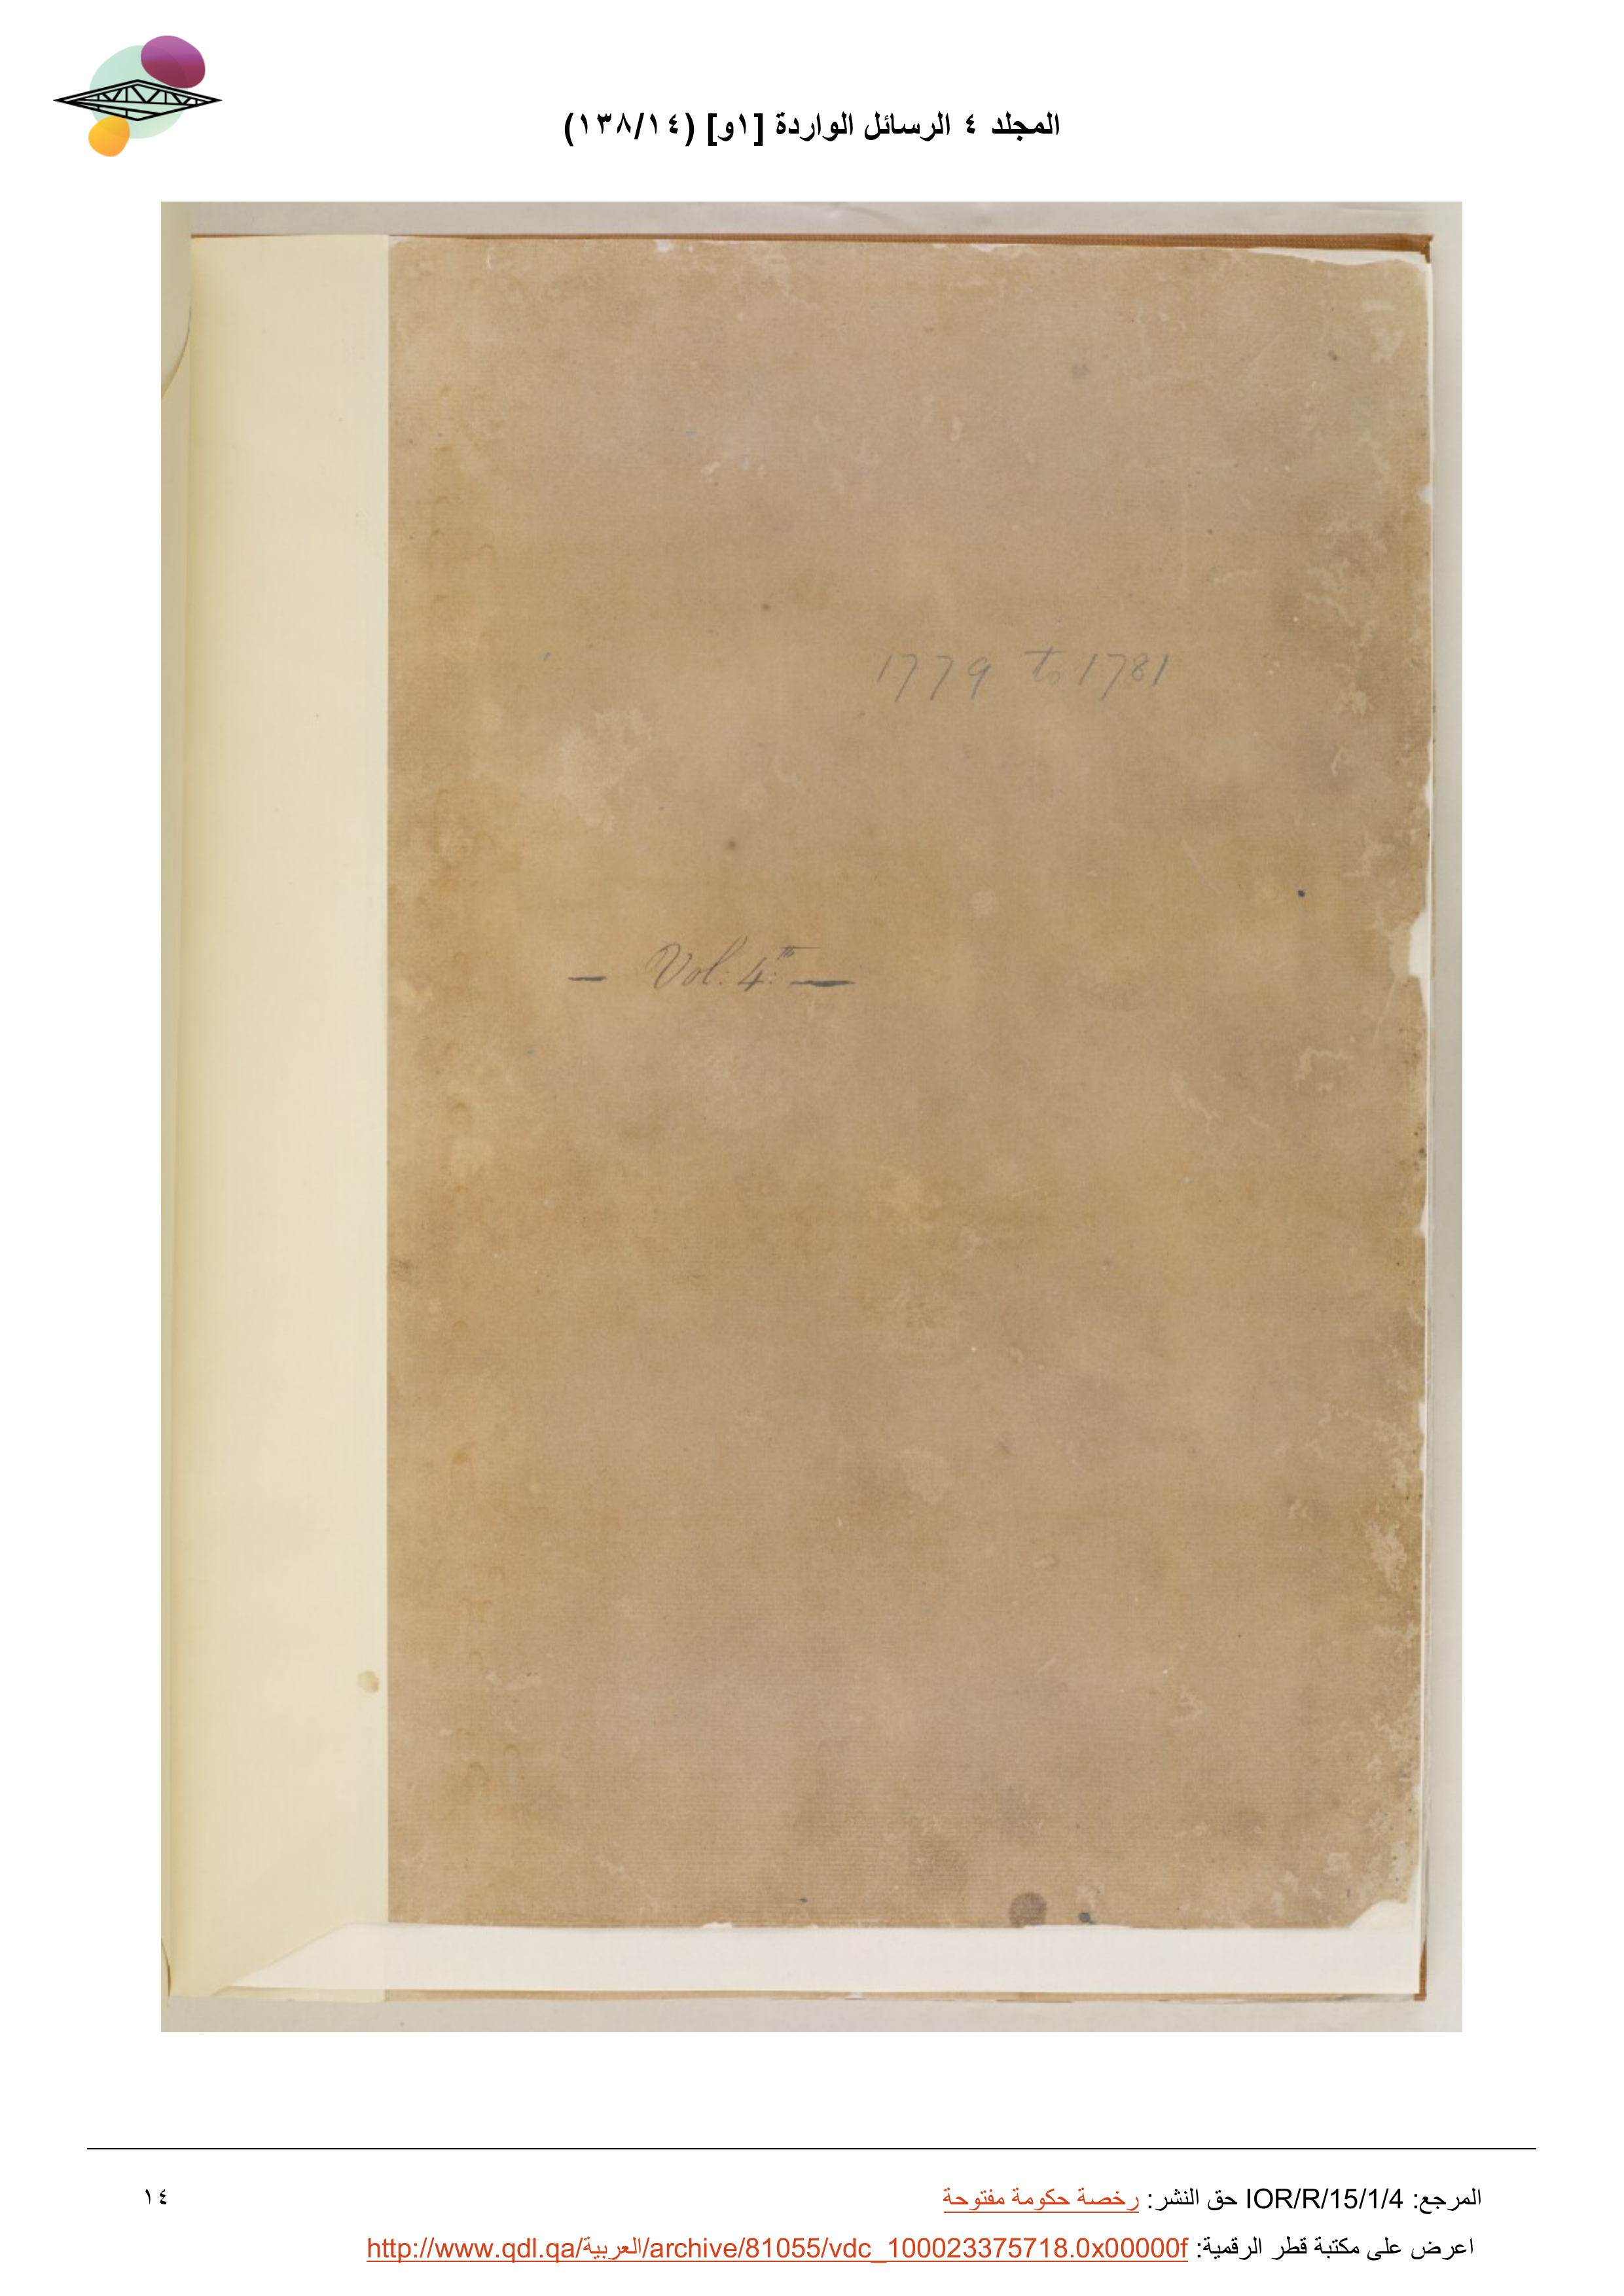 المجلد ٤ الرسائل الواردة [١و] (١٣٨/١٤)
1779 to 1781
— Vol: 4:th —
المرجع: IOR/R/15/1/4 حق النشر: رخصة حكومة مفتوحة
١٤
اعرض على مكتبة قطر الرقمية: http://www.qdl.qa/العربية/archive/81055/vdc_100023375718.0x00000f